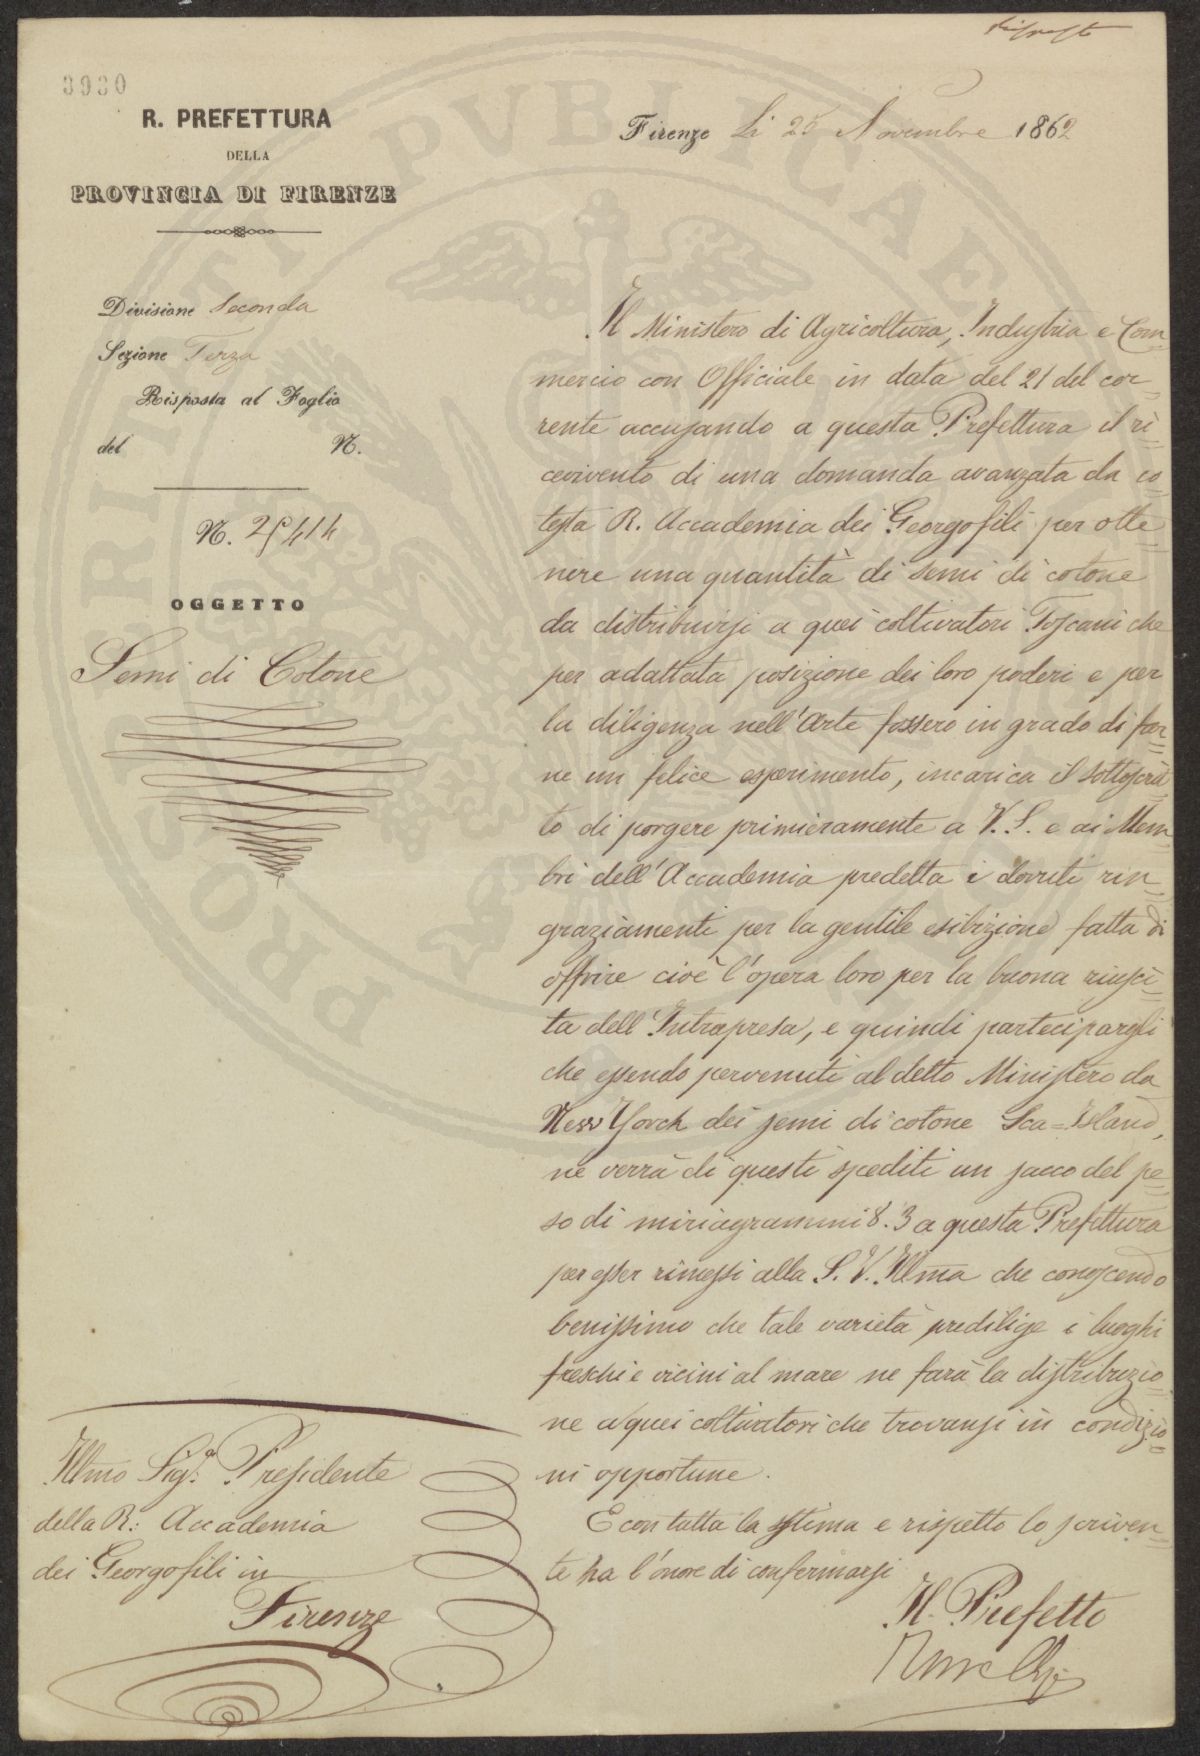 risposto
3930
R. PREFETTURA
DELLA
PROVINCIA DI FIRENZE
Firenze Li 25 Novembre 1862
Divisione Seconda
Sezione Terza
Risposta al Foglio
del N.
N. 25414
OGGETTO
Semi di Cotone
Il Ministero di Agricoltura, Industria e Com=
mercio con Officiale in data del 21 del cor=
rente accusando a questa Prefettura il ri=
cevivento di una domanda avanzata da co=
testa R. Accademia dei Georgofili per otte=
nere una quantità di semi di cotone
da distribuirsi a quei coltivatori Toscani che
per adattata posizione dei loro poderi e per
la diligenza nell'Arte fossero in grado di far=
ne un felice esperimento, incarica il sottoscrit=
to di porgere primieramente a V. S. e ai Mem=
bri dell'Accademia predetta i dovuti rin=
graziamenti per la gentile esibizione fatta di
offrire cioè l'opera loro per la buona riusci=
ta dell'Intrapresa, e quindi partecipargli
che essendo pervenuti al detto Ministero da
New Yorck dei semi di cotone Sea=Island,
ne verrà di questi spediti un sacco del pe=
so di miriagrammi 8.3 a questa Prefettura
per esser rimessi alla S. V. Illma che conoscendo
benissimo che tale varietà predilige i luoghi
freschi e vicini al mare ne farà la distribuzio=
ne a quei coltivatori che trovansi in condizio=
ni opportune.
E con tutta la stima e rispetto lo scriven=
te ha l'onore di confermarsi
Il Prefetto
Illmo Sigr. Presidente
della R: Accademia
dei Georgofili in
Firenze
PROSPERITATI PVBLICAE